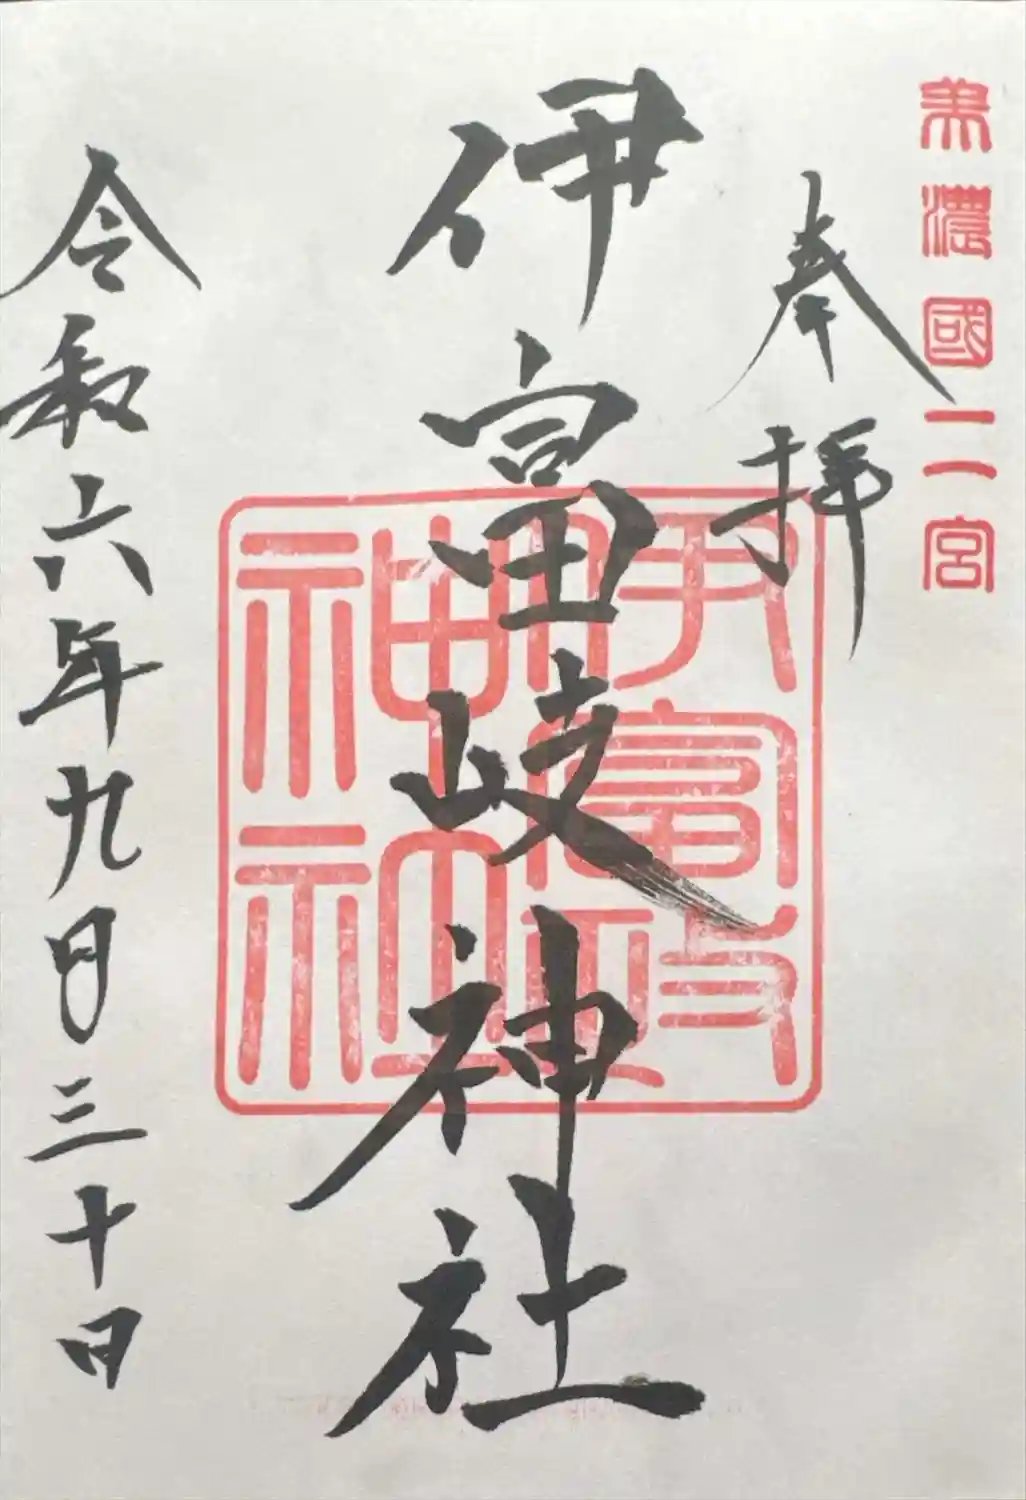 美濃國二宮
奉拝
伊富岐神社
伊富岐
神社
令和六年九月三十日